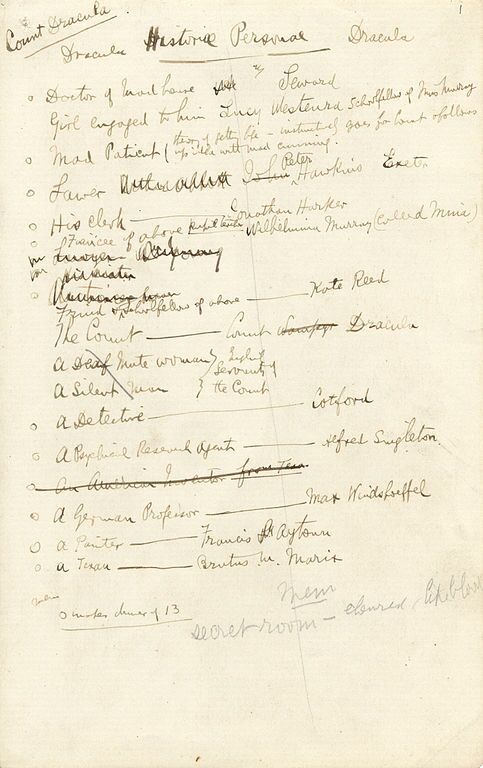 Count Dracula
1
Dracula Historiae Personae Dracula
Doctor of Mad house Seward
Girl engaged to him Lucy Westenra schoolfellow of Miss Murray
Mad Patient (theory of life – instinct of goes for
with mad cunning.
Lawer John Peter Hawkins Exeter
His clerk — Jonathan Harker
Fiancée of above pupil teacher Wilhelmina Murray (called Mina)
Lawyer
Friend & schoolfellow of above — Kate Reed
The Count — Count Wampyr Dracula
A Deaf Mute woman } English
Servants of
A Silent Man } the Count
A Detective — Cotford
A Psychical Research Agent — Alfred Singleton.
An American Inventor from Texas
A German Professor — Max Windshoeffel
A Painter — Francis Aytown
A Texan — Brutus M. Marix
mem
makes dinner of 13
Mem
secret room – coloured like blood